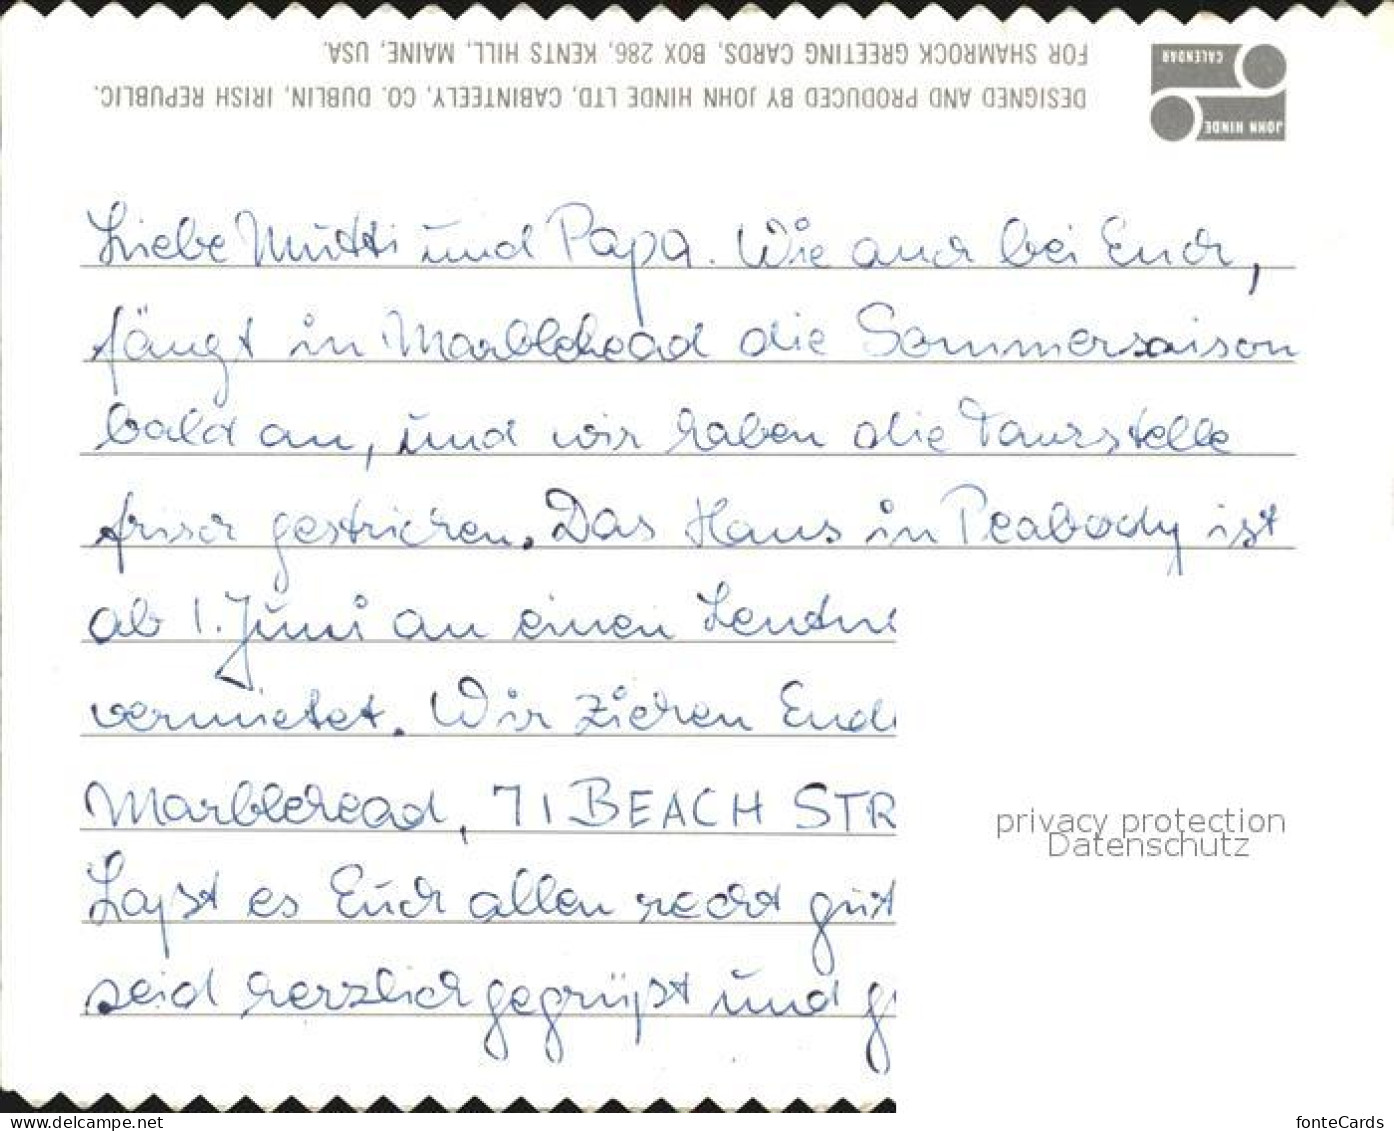 FOR SHAMROCK GREETING CARDS, BOX 286, KENTS HILL, MAINE, USA.
DESIGNED AND PRODUCED BY JOHN HINDE LTD, CABINTEELY, CO. DUBLIN, IRISH REPUBLIC.
JOHN HINDE
CALENDAR
Liebe Mutti und Papa. Wie auch bei Euch,
fängt in Marblehead die Sommersaison
bald an, und wir haben die
frisch gestrichen. Das Haus in Peabody ist
ab 1. Juni an einen
vermietet. Wir ziehen
Marblehead, 71 BEACH STR
Laßt es Euch allen recht gut
seid herzlich gegrüßt und g
privacy protection
Datenschutz
www.delcampe.net
fonteCards